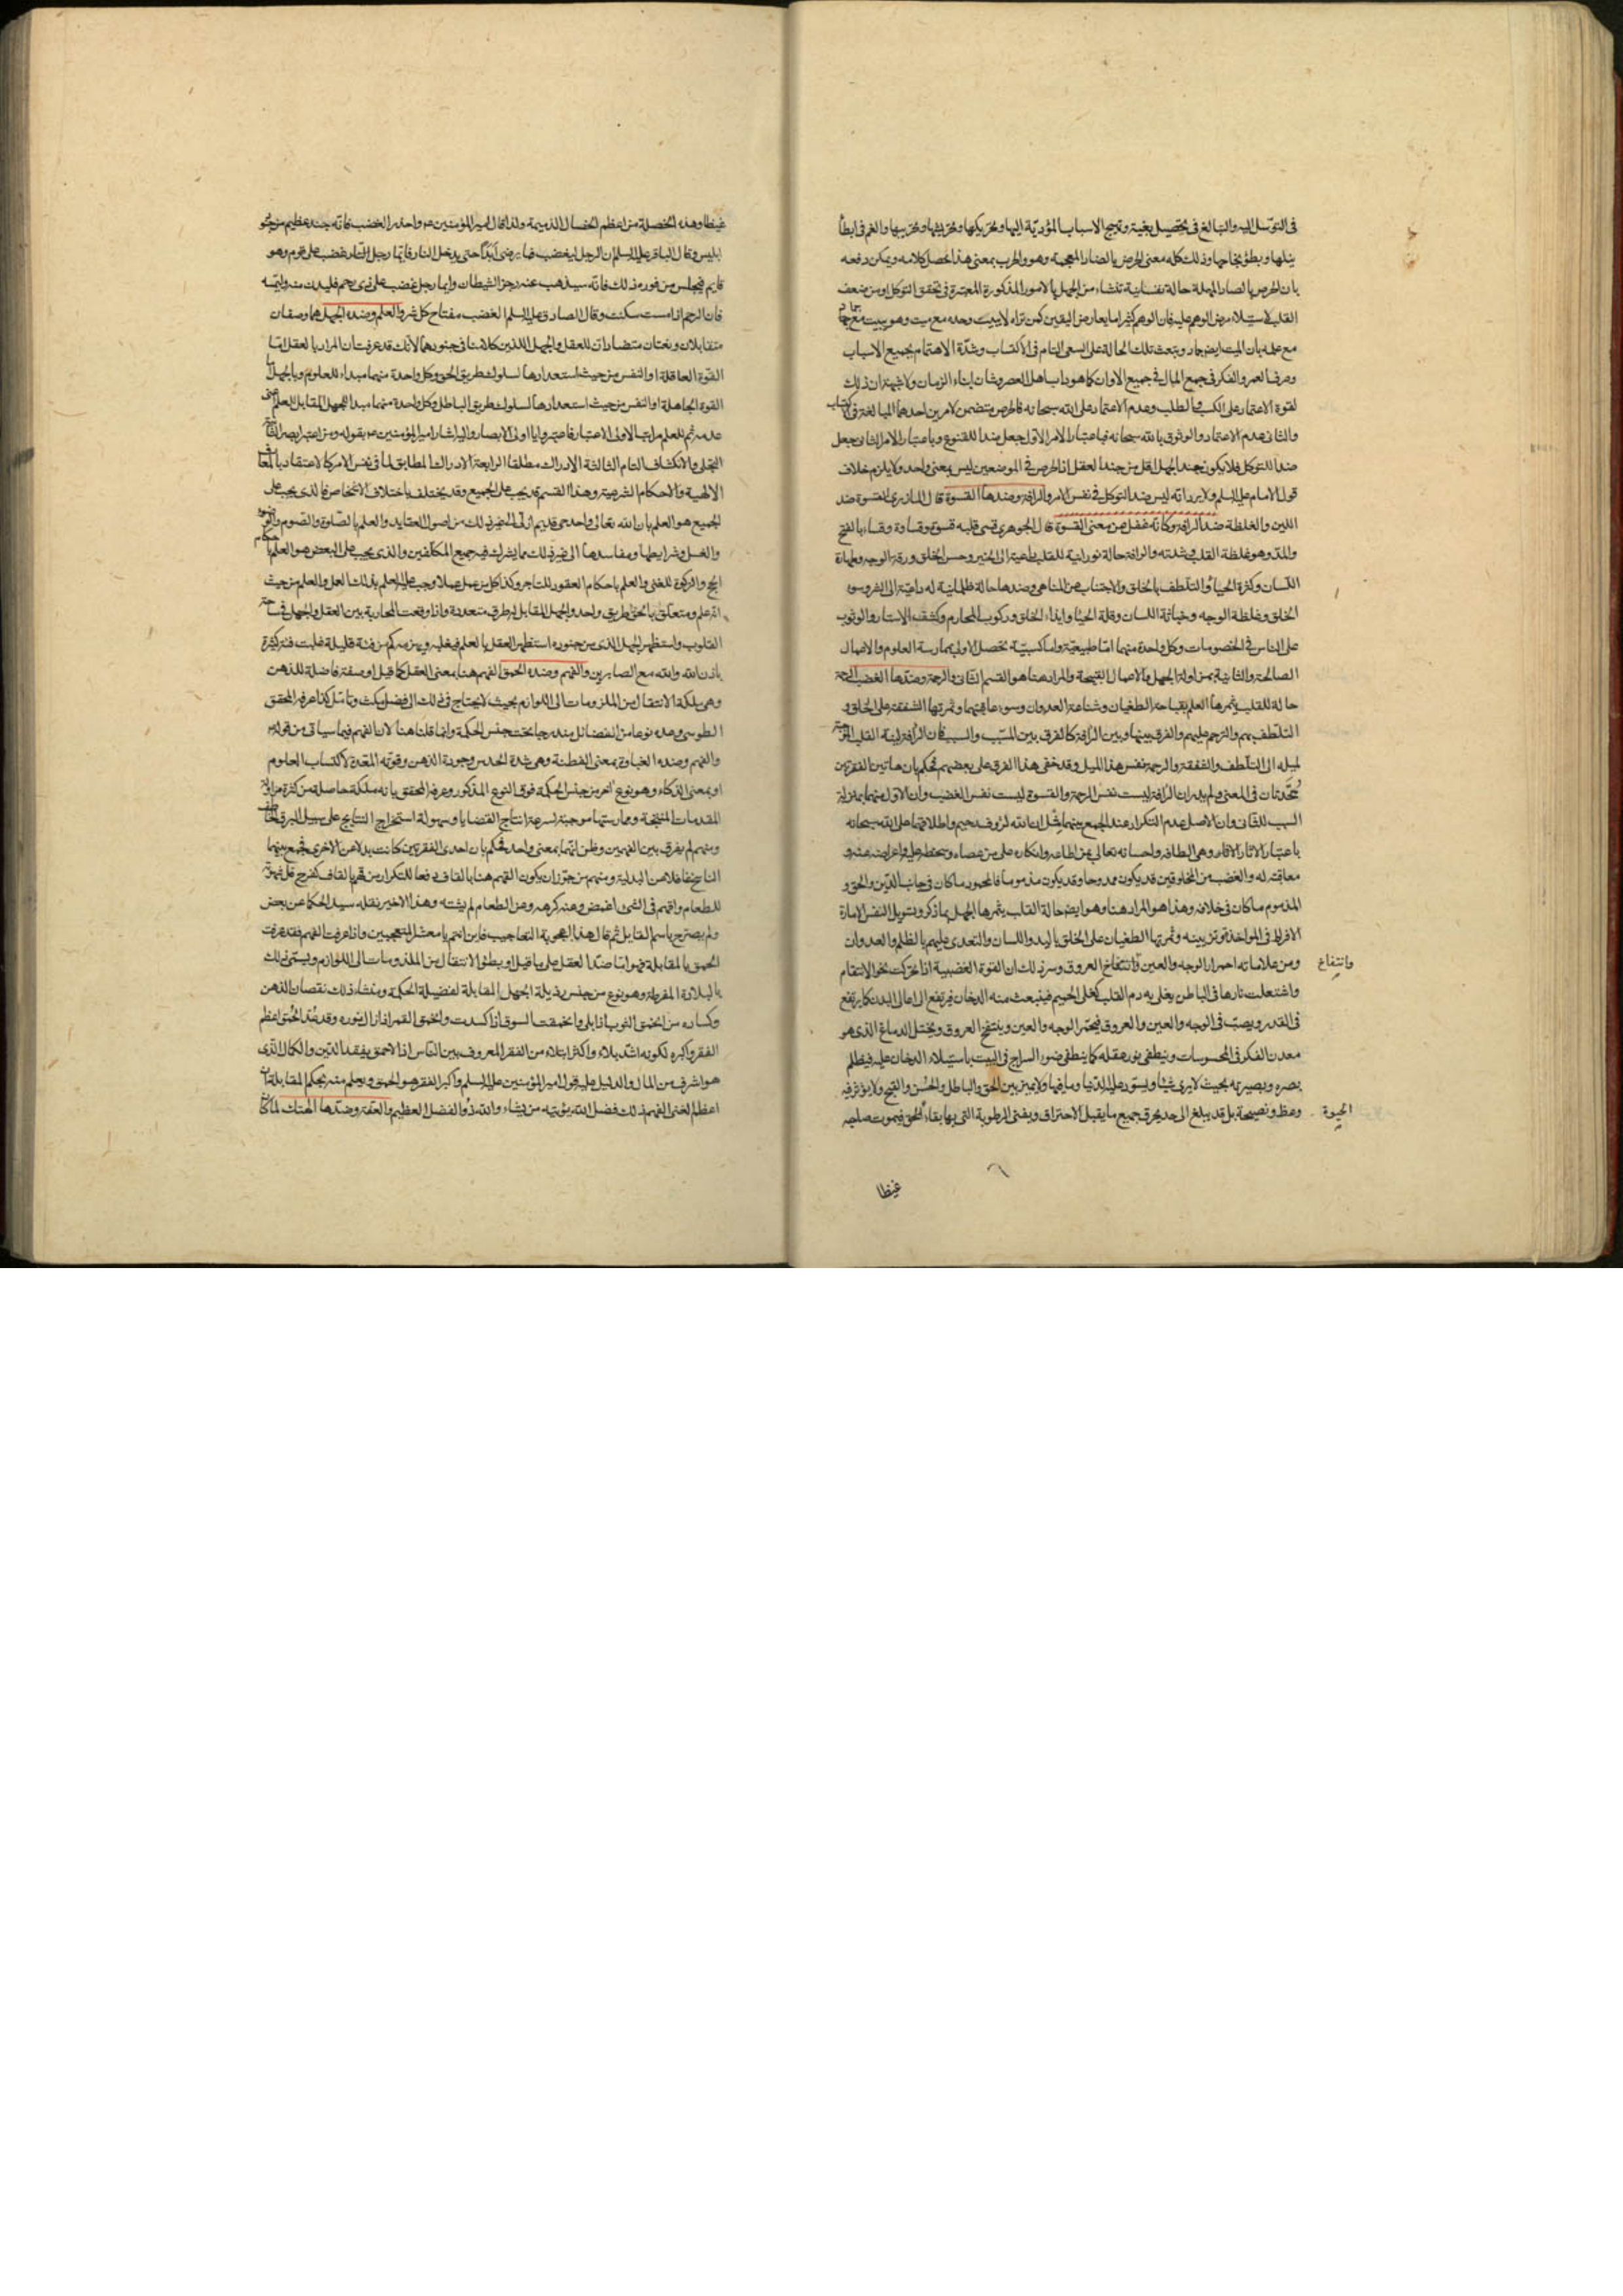 في التوسل اليه والتبالغ في تحصيل بغيته وتهيج الاسباب المؤدية اليها وتحريكها وتحريشها وتخريبها والغم في ابطأ
ينلها وبطؤ نجاحها وذلك كله معنى الحرض بالضاد المعجمة وهو والحرب بمعنى هذا محصل كلامه ويمكن دفعه
بان الحرص بالصاد المهملة حالة نفسانية تنشاء من الجهل بالامور المذكورة المعتبرة في تحقق التوكل او من ضعف
القلب لاستيلاء مرض الوهم عليه فان الوهم كثيرا ما يعارض اليقين كمن تراه لا يبيت وحده مع ميت وهو يبيت مع جماد
مع علمه بان الميت ايضا جماد وتبعث تلك الحالة على السعي التام في الاكتساب وشدة الاهتمام بجميع الاسباب
وصرف العمر والفكر في جمع المال في جميع الاوان كما هو داب اهل العصر وشان ابناء الزمان ولا شبهة ان ذلك
لقوة الاعتماد على الكسب والطلب وعدم الاعتماد على الله سبحانه فالحرص متضمن لامرين احدهما المبالغة في الاكتساب
والثاني عدم الاعتماد والوثوق بالله سبحانه فباعتبار الامر الاول جعل ضدا للقنوع وباعتبار الامر الثاني جعل
ضدا للتوكل فلا يكون جند الجهل اقل من جند العقل اذ الحرص في الموضعين ليس بمعنى واحد ولا يلزم خلاف
قول الامام عليه السلم ولا يرد انه ليس ضد التوكل في نفس الامر والرافة وضدها القسوة قال المازري القسوة ضد
اللين والغلظة ضد الرافة وكانه غفل عن معنى القسوة قال الجوهري قسى قلبه قسوة وقساوة وقساء بالفتح
والمد وهو غلظة القلب وشدته والرافة حالة نورانية للقلب داعية الى الخير وحسن الخلق ورقة الوجه وطهارة
اللسان وكثرة الحياء والتلطف بالخلق والاجتناب عن المناهي وضدها حالة ظلمانية له داعية الى الشر وسوء
الخلق وغلظة الوجه وخباثة اللسان وقلة الحياء وايذاء الخلق وركوب المحارم وكشف الاستار والوثوب
على الناس في الخصومات وكل واحدة منهما اما طبيعية واما كسبية تحصل الاولى بممارسة العلوم والاعمال
الصالحة والثانية بمزاولة الجهل والاعمال القبيحة والمراد هنا هو القسم الثاني والرحمة وضدها الغضب الرحمة
حالة للقلب يثمرها العلم بقباحة الطغيان وشناعة العدوان وسوء عاقبتهما وثمرتها الشفقة على الخلق و
التلطف بهم والترحم عليهم والفرق بينها وبين الرافة كالفرق بين المسبب والسبب فان الرافة لينة القلب الموجبة
لميله الى التلطف والشفقة والرحمة نفس هذا الميل وقد خفي هذا الفرق على بعضهم فحكم بان هاتين الفقرتين
متحدتان في المعنى ولم يدر ان الرافة ليست نفس الرحمة والقسوة ليست نفس الغضب وان الاول منهما بمنزلة
السبب للثاني وان الاصل عدم التكرار عند الجمع بينهما مثل ان الله لرؤف رحيم واطلاقهما على الله سبحانه
باعتبار الاثار وهي الطافه واحسانه تعالى لمن اطاعه وانكاره على من عصاه وسخطه عليه واعراضه عنه و
معاقبته له والغضب من المخلوقين قد يكون ممدوحا وقد يكون مذموما فالمحمود ما كان في جانب الدين والحق و
المذموم ما كان في خلافه وهذا هو المراد هنا وهو ايضا حالة القلب يثمرها الجهل بما ذكر وتسويل النفس الامارة
الافراط في المواخذة وتزيينه وثمرتها الطغيان على الخلق باليد واللسان والتعدي عليهم بالظلم والعدوان
ومن علاماته احمرار الوجه والعين وانتفاخ العروق وسر ذلك ان القوة الغضبية اذا تحركت نحو الانتقام
وانتفاخ
واشتعلت نارها في الباطن يغلى به دم القلب كغلي الحميم فينبعث منه الدخان فيرتفع الى اعالي البدن كما يرتفع
في القدر ويصب في الوجه والعين والعروق فيحمر الوجه والعين وينتفخ العروق ويختل الدماغ الذي هو
معدن الفكر في المحسوسات وينطفي نور عقله كما ينطفي ضوء السراج في البيت باستيلاء الدخان عليه فيظلم
بصره وبصيرته بحيث لا يرى شيئا ويسود عليه الدنيا وما فيها ولا يميز بين الحق والباطل والحسن والقبح ولا يؤثر فيه
وعظ ونصيحة بل قد يبلغ الى حد يحرق جميع ما يقبل الاحتراق ويفنى الرطوبة التي بها بقاء الحق فيموت صاحبه
الحيوة
غيظا
غيظا وهذه الخصلة من اعظم الخصال الذميمة ولذا قال امير المؤمنين ع واحذر الغضب فانه جند عظيم من جنود
ابليس وقال الباقر عليه السلم ان الرجل ليغضب فما يرضى ابدا حتى يدخل النار فايما رجل غضب على قوم وهو
قايم فليجلس من فوره ذلك فانه سيذهب عنه رجز الشيطان وايما رجل غضب على ذي رحم فليدن منه وليمسه
فان الرحم اذا مست سكنت وقال الصادق عليه السلم الغضب مفتاح كل شر والعلم وضده الجهل هما وصفان
متقابلان ونعتان متضادان للعقل والجهل اللذين كلامنا في جنودهما لانك قد عرفت ان المراد بالعقل اما
القوة العاقلة او النفس من حيث استعدادها لسلوك طريق الحق وكل واحدة منهما مبداء للعلوم وبالجهل
القوة الجاهلة او النفس من حيث استعدادها لسلوك طريق الباطل وكل واحدة منهما مبدا للجهل المقابل للعلم
عدمه ثم للعلم مراتب الاولى الاعتبار فاعتبروا يا اولى الابصار واليه اشار امير المؤمنين ع بقوله ومن اعتبر ابصر الثانية
التجلي والانكشاف التام الثالثة الادراك مطلقا الرابعة الادراك المطابق لما في نفس الامر كالاعتقاد بالمعارف
الالهية والاحكام الشرعية وهذا القسم قد يجب على الجميع وقد يختلف باختلاف الاشخاص فالذي يجب على
الجميع هو العلم بان الله تعالى واحد حي قديم ازلي الى غير ذلك من اصول العقايد والعلم بالصلوة والصوم والوضوء
والغسل وشرايطها ومفاسدها الى غير ذلك مما يشترك فيه جميع المكلفين والذي يجب على البعض هو العلم باحكام
الحج والزكوة للغني والعلم باحكام العقود للتاجر وكذا كل من عمل عملا وجب عليه العلم بذلك العمل والعلم من حيث
انه علم ومتعلق بالحق طريق واحد والجهل المقابل له طرق متعددة واذا وقعت المحاربة بين العقل والجهل في ساحة
القلوب واستظهر الجهل الذي من جنوده استظهر العقل بالعلم فيغلبه ويهزمه كم من فئة قليلة غلبت فئة كثيرة
باذن الله والله مع الصابرين والفهم وضده الحمق الفهم هنا بمعنى العقل كما قيل او صفة فاضلة للذهن
وهي ملكة الانتقال من الملزومات الى اللوازم بحيث لا يحتاج في ذلك الى فضل مكث وتامل كذا عرفه المحقق
الطوسي وعده نوعا من الفضائل مندرجا تحت جنس الحكمة وانما قلنا هنا لان الفهم فيما سياتي من قوله
والفهم وضده الغباوة بمعنى الفطنة وهي شدة الحدس وجودة الذهن وقوته المعدة لاكتساب العلوم
او بمعنى الذكاء وهو نوع آخر من جنس الحكمة فوق النوع المذكور وعرفه المحقق بانه ملكة حاصلة من كثرة مزاولة
المقدمات المنتجة وممارستها موجبة لسرعة انتاج القضايا وسهولة استخراج النتايج على سبيل البرق الخاطف
ومنهم لم يفرق بين الفهمين وظن انهما بمعنى واحد فحكم بان احدى الفقرتين كانت بدلا عن الاخرى فجمع بينهما
الناسخ غافلا عن البدلية ومنهم من جوز ان يكون القهم هنا بالقاف دفعا للتكرار من قهم بالقاف كفرح قل شهوته
للطعام واقهم في الشئ اغمض وعنه كرهه وعن الطعام لم يشته وهذا الاخير نقله سيد الحكما عن بعض
ولم يصرح باسم القايل ثم قال هذا اعجوبة التعاجيب فاين انتم يا معشر المتعجبين واذا عرفت الفهم فقد عرفت
الحمق بالمقابلة فهو اما ضد العقل على ما قيل او بطؤ الانتقال من الملزومات الى اللوازم ويسمى ذلك
بالبلادة المفرطة وهو نوع من جنس رذيلة الجهل المقابلة لفضيلة الحكمة ومنشاء ذلك نقصان الذهن
وكساده من انحمق الثوب اذا بلى وانحمقت السوق اذا كسدت وانحمق القمر اذا زال نوره وقد عد الحمق اعظم
الفقر واكبره لكونه اشد بلاء واكثر ابتلاء من الفقر المعروف بين الناس اذ الاحمق يفقد الدين والكمال الذي
هو اشرف من المال والدليل عليه قول امير المؤمنين عليه السلم واكبر الفقر هو الحمق ويعلم منه بحكم المقابلة ان
اعظم الغنى الفهم ذلك فضل الله يؤتيه من يشاء والله ذو الفضل العظيم والعفة وضدها الهتك لما كان